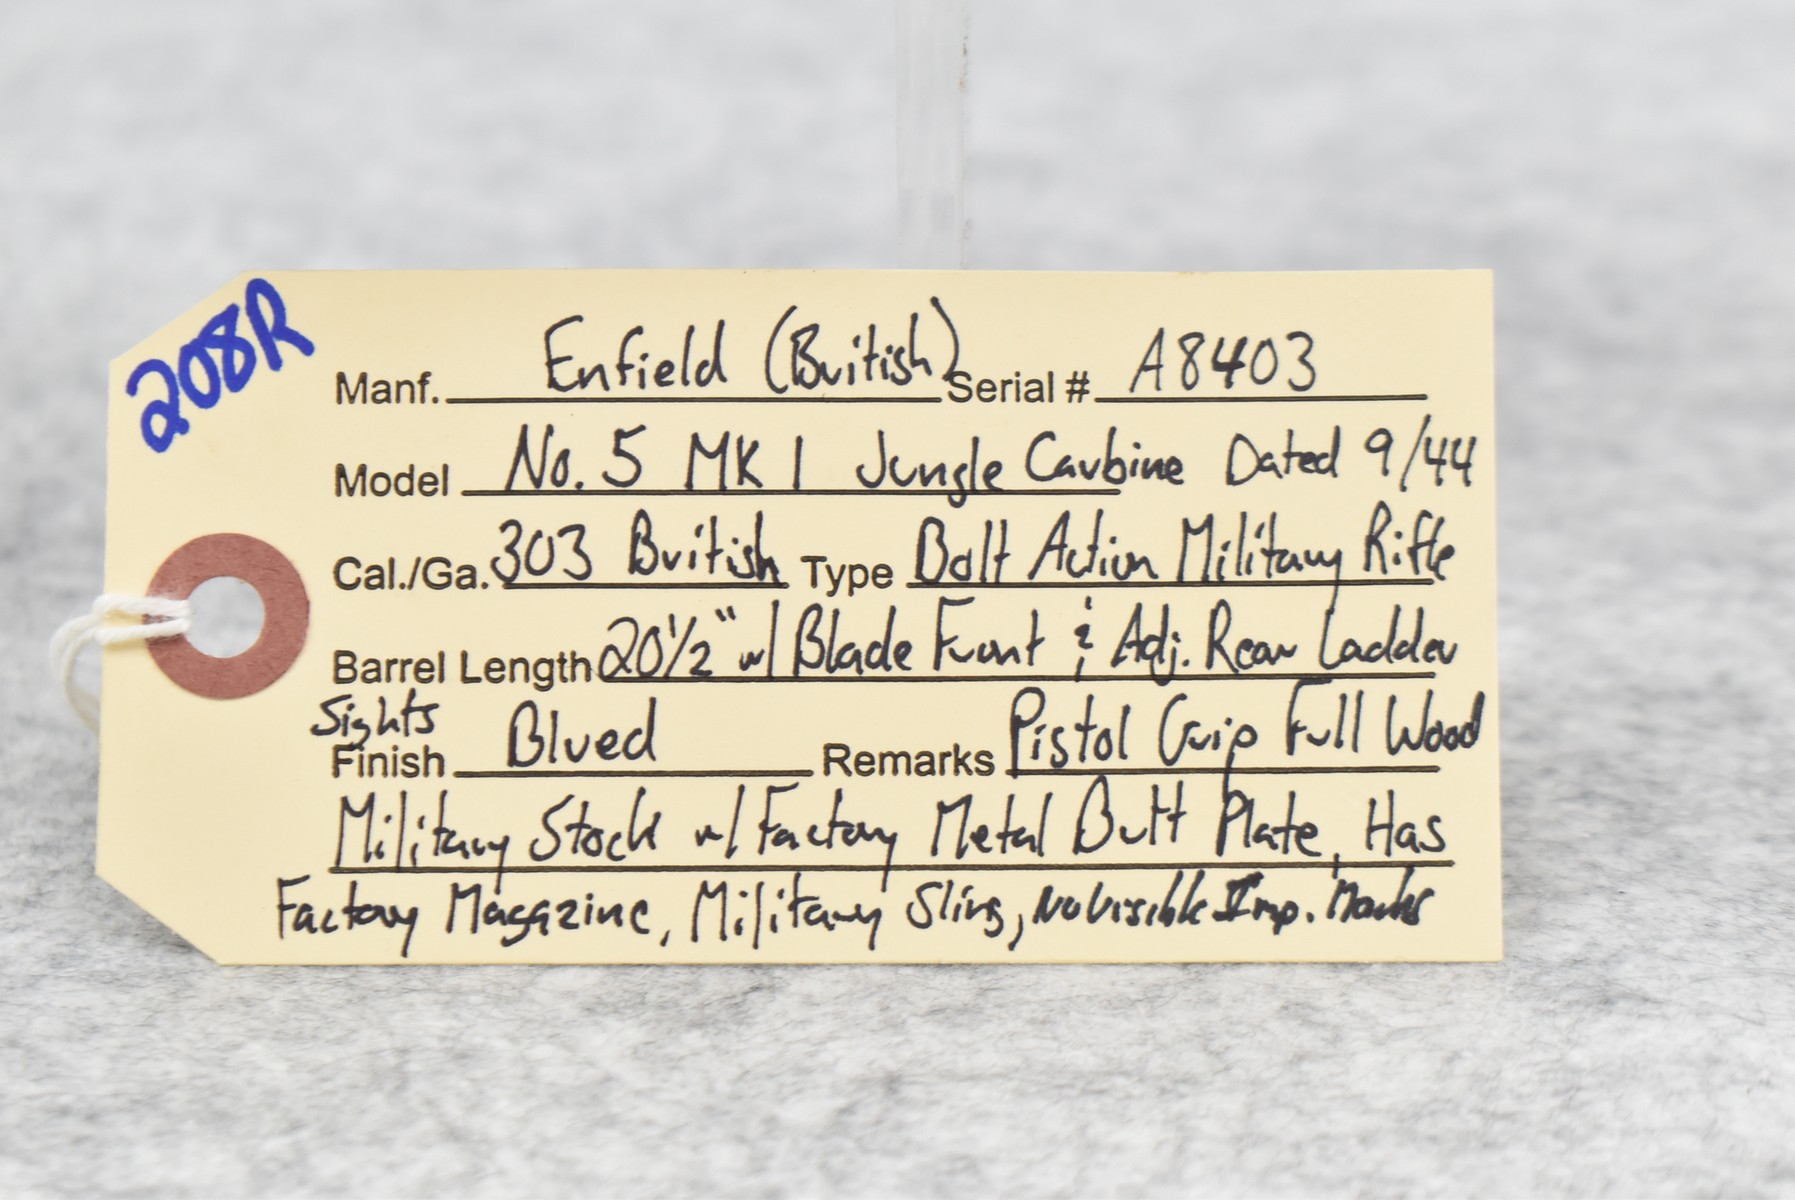 208R
Manf. Enfield (British) Serial # A8403
Model No. 5 MK 1 Jungle Carbine Dated 9/44
Cal./Ga. 303 British Type Bolt Action Military Rifle
Barrel Length 20 1/2" w/ Blade Front & Adj. Rear Ladder
Sights
Finish Blued Remarks Pistol Grip Full Wood
Military Stock w/ Factory Metal Butt Plate, Has
Factory Magazine, Military Sling, No Visible Imp. Marks